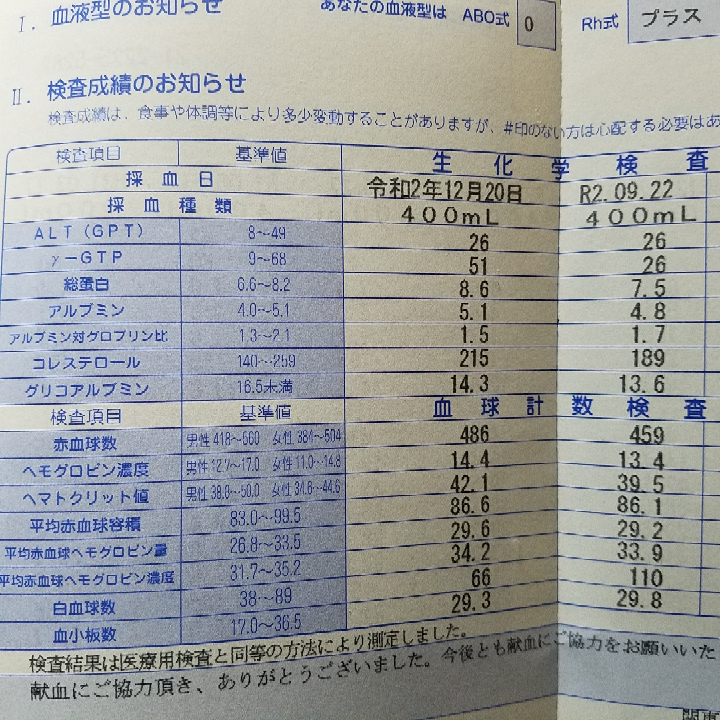 I. 血液型のお知らせ あなたの血液型は ABO式 O Rh式 プラス
II. 検査成績のお知らせ
検査成績は、食事や体調等により多少変動することがありますが、#印のない方は心配する必要はあ
検査項目 基準値 生化学検査
採血日 令和2年12月20日 R2.09.22
採血種類 400mL 400mL
ALT(GPT) 8〜49 26 26
γ-GTP 9〜68 51 26
総蛋白 6.6〜8.2 8.6 7.5
アルブミン 4.0〜5.1 5.1 4.8
アルブミン対グロブリン比 1.3〜2.1 1.5 1.7
コレステロール 140〜259 215 189
グリコアルブミン 16.5未満 14.3 13.6
検査項目 基準値 血球計数検査
赤血球数 男性 418〜560 女性 384〜504 486 459
ヘモグロビン濃度 男性 12.7〜17.0 女性 11.0〜14.8 14.4 13.4
ヘマトクリット値 男性 38.8〜50.0 女性 34.6〜44.6 42.1 39.5
平均赤血球容積 83.0〜99.5 86.6 86.1
平均赤血球ヘモグロビン量 26.8〜33.5 29.6 29.2
平均赤血球ヘモグロビン濃度 31.7〜35.2 34.2 33.9
白血球数 38〜89 66 110
血小板数 17.0〜36.5 29.3 29.8
検査結果は医療用検査と同等の方法により測定しました。
献血にご協力頂き、ありがとうございました。今後とも献血にご協力をお願いいた